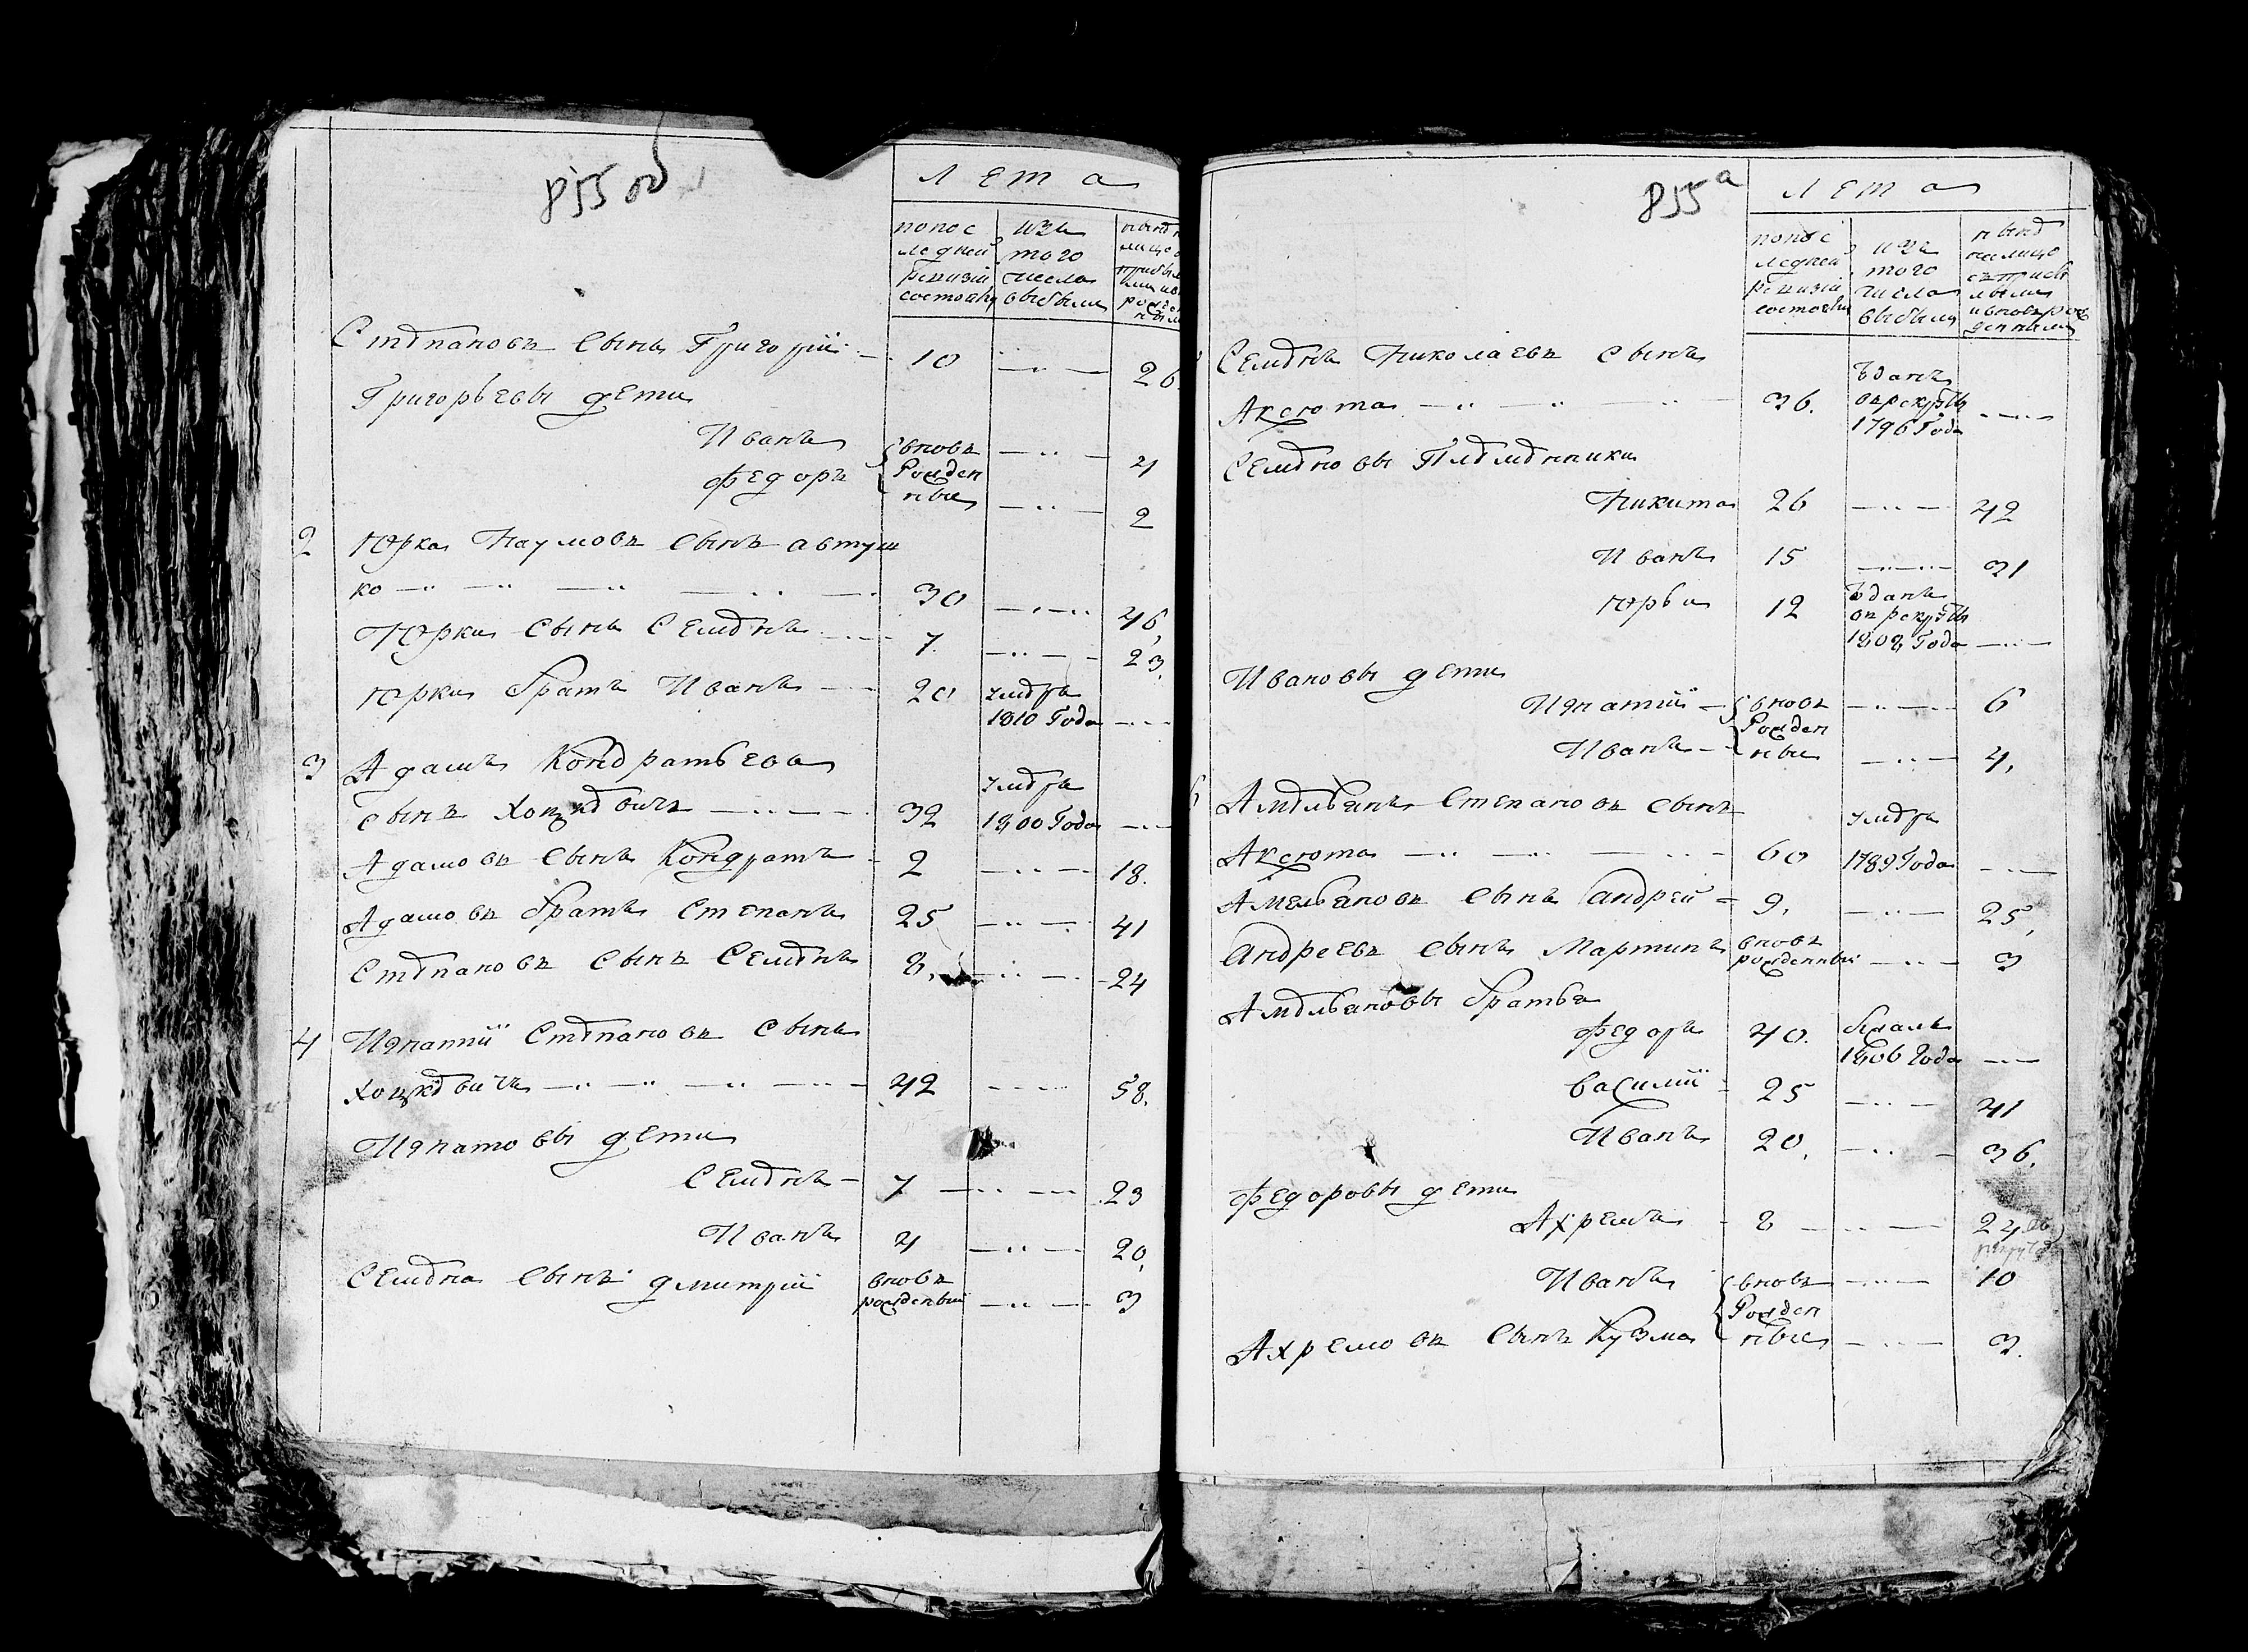 855 об
Лета
попос
ледней
ревизіи
состояло
изъ
того
числа
выбыли
нынѣ н
лицо
Степановъ сынъ Григорій 10 26
Григорьевы дети
Иванъ вновь 4
Федоръ рожден
ные 2
2 Юрка Наумовъ сынъ автуш
ко 30 46
Юрки сынъ Семѣнъ 7 23
Юрки братъ Иванъ 20 умѣръ
1810 Года
3 Адамъ Кондратьева умѣръ
сынъ Хоцкѣвичъ 32 1800 Года
Адамовъ сынъ Кондратъ 2 18
Адамовъ братъ Степанъ 25 41
Стѣпановъ сынъ Семѣнъ 8 24
4 Игнатій Стѣпановъ сынъ
Хоцкѣвичъ 42 58
Игнатовы дети
Семѣнъ 7 23
Иванъ 4 20
Семѣна сынъ дмитрій вновь
рожденный 3
855а
Лета
попос
ледней
ревизіи
состояло
изъ
того
числа
выбыли
нынѣ
налицо
съ прибы
лыми
и вновь рож
денными
Семѣнъ Николаевъ сынъ
Аксюта 36 ѣданъ
въ рекрѣты
1796 Года
Семѣновы Плѣмѣнники
Никита 26 42
Иванъ 15 31
Юрьи 12 ѣданъ
въ рекрѣты
1808 Года
Ивановы дети
Игнатій вновь 6
рожден
Иванъ ные 4
6 Амѣльянъ Степановъ сынъ умѣръ
Аксюта 60 1789 Года
Амельяновъ сынъ Андрей 9 25
Андреевъ сынъ Мартинъ вновь
рожденный 3
Амѣльяновы братья
Федоръ 40 бежалъ
1806 Года
Василій 25 41
Иванъ 20 36
Федоровы дети
Ахремъ 8 24
Иванъ вновь 10
рожден
Ахремовъ сынъ Кузма ные 3